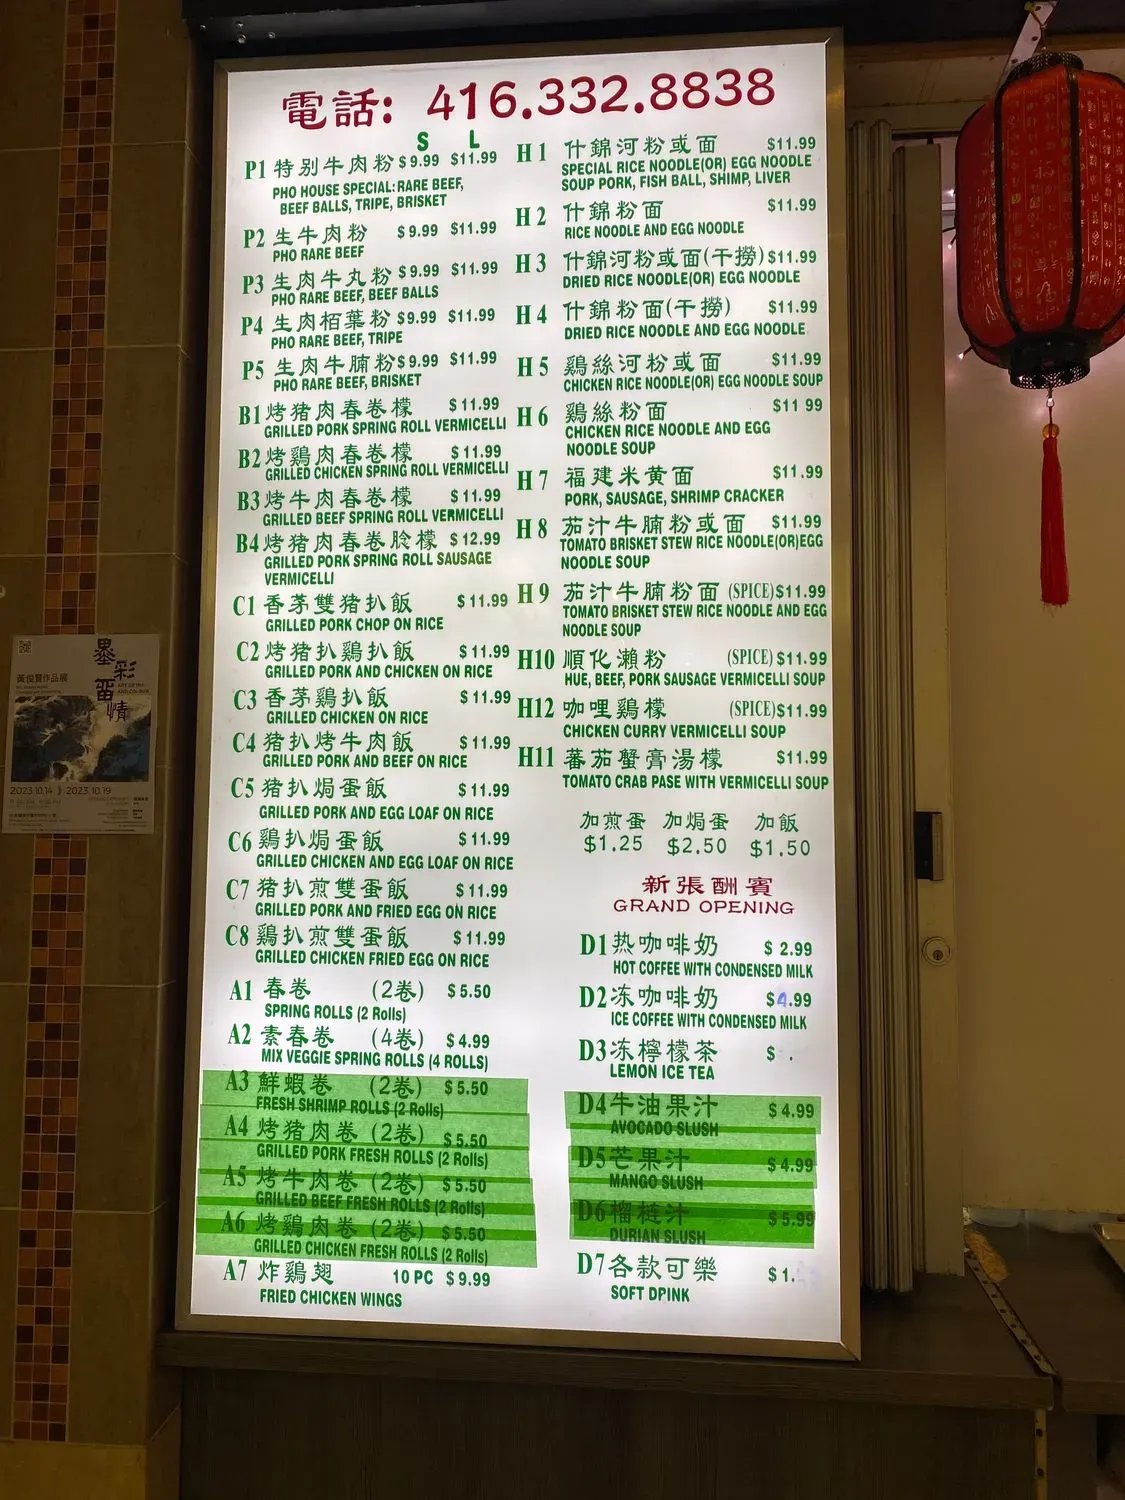 電話: 416.332.8838
S L
P1 特別牛肉粉 $9.99 $11.99
PHO HOUSE SPECIAL: RARE BEEF,
BEEF BALLS, TRIPE, BRISKET
P2 生牛肉粉 $9.99 $11.99
PHO RARE BEEF
P3 生肉牛丸粉 $9.99 $11.99
PHO RARE BEEF, BEEF BALLS
P4 生肉栢葉粉 $9.99 $11.99
PHO RARE BEEF, TRIPE
P5 生肉牛腩粉 $9.99 $11.99
PHO RARE BEEF, BRISKET
B1 烤猪肉春卷檬 $11.99
GRILLED PORK SPRING ROLL VERMICELLI
B2 烤鷄肉春卷檬 $11.99
GRILLED CHICKEN SPRING ROLL VERMICELLI
B3 烤牛肉春卷檬 $11.99
GRILLED BEEF SPRING ROLL VERMICELLI
B4 烤猪肉春卷腍檬 $12.99
GRILLED PORK SPRING ROLL SAUSAGE
VERMICELLI
C1 香茅雙猪扒飯 $11.99
GRILLED PORK CHOP ON RICE
C2 烤猪扒鷄扒飯 $11.99
GRILLED PORK AND CHICKEN ON RICE
C3 香茅鷄扒飯 $11.99
GRILLED CHICKEN ON RICE
C4 猪扒烤牛肉飯 $11.99
GRILLED PORK AND BEEF ON RICE
C5 猪扒焗蛋飯 $11.99
GRILLED PORK AND EGG LOAF ON RICE
C6 鷄扒焗蛋飯 $11.99
GRILLED CHICKEN AND EGG LOAF ON RICE
C7 猪扒煎雙蛋飯 $11.99
GRILLED PORK AND FRIED EGG ON RICE
C8 鷄扒煎雙蛋飯 $11.99
GRILLED CHICKEN FRIED EGG ON RICE
A1 春卷 (2卷) $5.50
SPRING ROLLS (2 Rolls)
A2 素春卷 (4卷) $4.99
MIX VEGGIE SPRING ROLLS (4 ROLLS)
A3 鮮蝦卷 (2卷) $5.50
FRESH SHRIMP ROLLS (2 Rolls)
A4 烤猪肉卷 (2卷) $5.50
GRILLED PORK FRESH ROLLS (2 Rolls)
A5 烤牛肉卷 (2卷) $5.50
GRILLED BEEF FRESH ROLLS (2 Rolls)
A6 烤鷄肉卷 (2卷) $5.50
GRILLED CHICKEN FRESH ROLLS (2 Rolls)
A7 炸鷄翅 10 PC $9.99
FRIED CHICKEN WINGS
H1 什錦河粉或面 $11.99
SPECIAL RICE NOODLE(OR) EGG NOODLE
SOUP PORK, FISH BALL, SHIMP, LIVER
H2 什錦粉面 $11.99
RICE NOODLE AND EGG NOODLE
H3 什錦河粉或面(干撈) $11.99
DRIED RICE NOODLE(OR) EGG NOODLE
H4 什錦粉面(干撈) $11.99
DRIED RICE NOODLE AND EGG NOODLE
H5 鷄絲河粉或面 $11.99
CHICKEN RICE NOODLE(OR) EGG NOODLE SOUP
H6 鷄絲粉面 $11 99
CHICKEN RICE NOODLE AND EGG
NOODLE SOUP
H7 福建米黄面 $11.99
PORK, SAUSAGE, SHRIMP CRACKER
H8 茄汁牛腩粉或面 $11.99
TOMATO BRISKET STEW RICE NOODLE(OR)EGG
NOODLE SOUP
H9 茄汁牛腩粉面 (SPICE) $11.99
TOMATO BRISKET STEW RICE NOODLE AND EGG
NOODLE SOUP
H10 順化瀨粉 (SPICE) $11.99
HUE, BEEF, PORK SAUSAGE VERMICELLI SOUP
H12 咖哩鷄檬 (SPICE) $11.99
CHICKEN CURRY VERMICELLI SOUP
H11 蕃茄蟹膏湯檬 $11.99
TOMATO CRAB PASE WITH VERMICELLI SOUP
加煎蛋 加焗蛋 加飯
$1.25 $2.50 $1.50
新張酬賓
GRAND OPENING
D1 热咖啡奶 $2.99
HOT COFFEE WITH CONDENSED MILK
D2 冻咖啡奶 $4.99
ICE COFFEE WITH CONDENSED MILK
D3 冻檸檬茶 $ .
LEMON ICE TEA
D4 牛油果汁 $4.99
AVOCADO SLUSH
D5 芒果汁 $4.99
MANGO SLUSH
D6 榴梿汁 $5.99
DURIAN SLUSH
D7 各款可樂 $1.
SOFT DPINK
墨彩
留情
黃俊賢作品展
ART OF INK
AND COLOUR
2023.10.14 2023.10.19